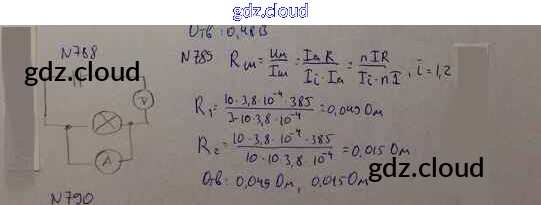 gdz.cloud
Отв: 0,48 В
N768
gdz.cloud
V
A
N785 Rш = Uш/Iш = Iа R/(Ii - Iа) = nIR/(Ii - nI), i = 1,2
R1 = 10·3,8·10⁻⁴·385/(3-10·3,8·10⁻⁴) = 0,049 Ом
R2 = 10·3,8·10⁻⁴·385/(10-10·3,8·10⁻⁴) = 0,015 Ом
gdz.cloud
Отв: 0,049 Ом, 0,015 Ом
N790